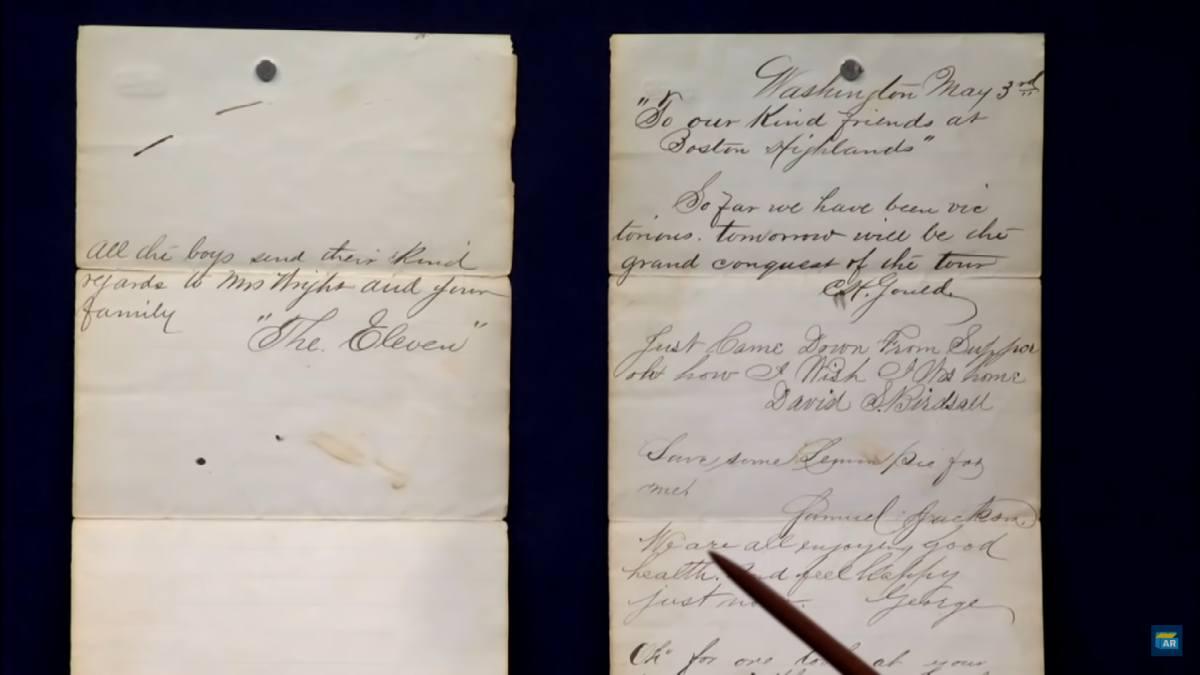 All the boys send their kind
regards to Mrs Wright and your
family
"The Eleven"
Washington May 3rd
"To our kind friends at
Boston Highlands"
So far we have been vic
torious. tomorrow will be the
grand conquest of the tour
C.H. Gould
Just Came Down From Supper
oh how I Wish I Was home
David S. Birdsall
Save some Lemon pie for
me.
Samuel Jackson
We are all enjoying good
health. and feel happy
just now. George
Oh for one look at your
AR